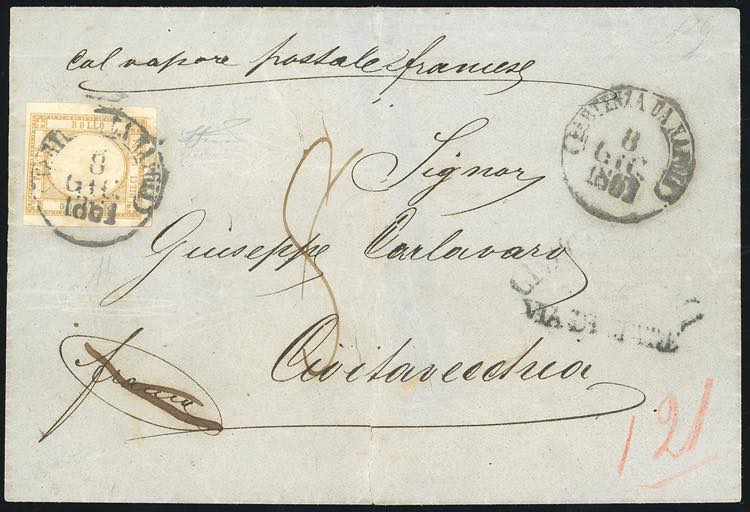 col vapore postale francese
BOLLO
DIECI
8
GIU
1861
PARTENZA DA NAPOLI
8
GIU
1861
Signor
Giuseppe Carlavaro
8
VIA DI MARE
Civitavecchia
franca
121